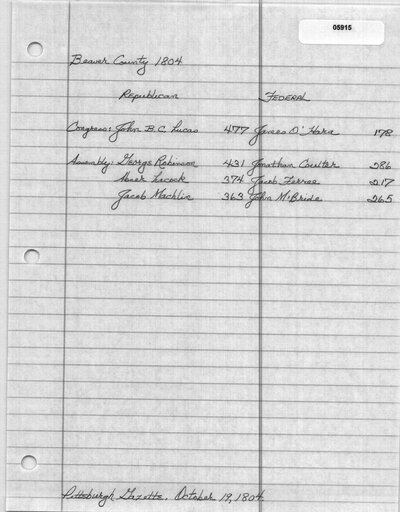 05915
Beaver County 1804
Republican FEDERAL
Congress: John B.C. Lucas 477 James O'Hara 178
Assembly: George Robinson 431 Jonathan Coulter 286
Abner Lacock 374 Jacob Ferree 217
Jacob Machlin 363 John McBride 265
Pittsburgh Gazette, October 19, 1804